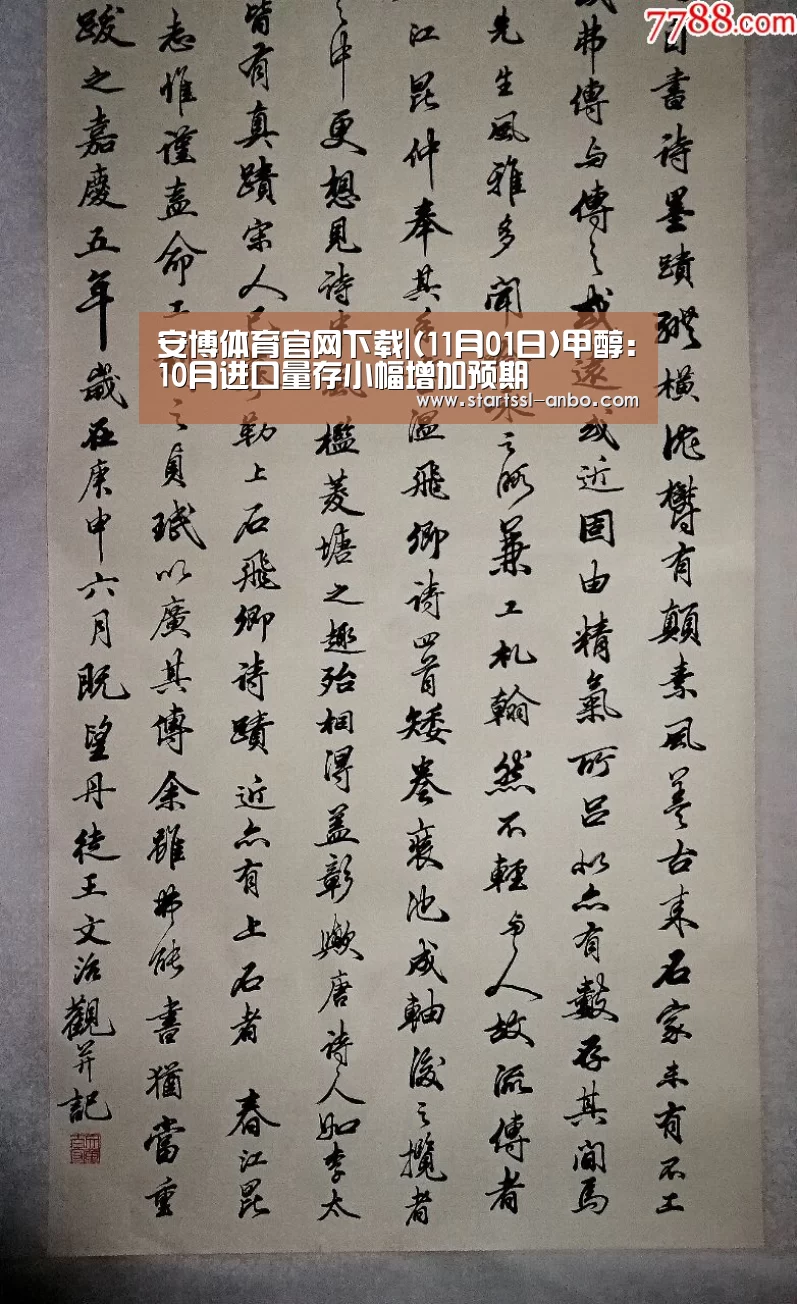 7788.com
安博体育官网下载|(11月01日)甲醇:
10月进口量存小幅增加预期
www.startssl-anbo.com
書詩墨蹟縱橫有顛素風古來石家未有不工
弗傳与傳之或遠或近固由精氣所亦有數存其間焉
先生風雅多聞之所兼工札翰然不輕与人故流傳者
江昆仲奉其溫飛卿詩四首矮卷裝池成軸後之攬者
之中更想見詩風檻菱塘之趣殆相得蓋彰歟唐詩人如李太
皆有真蹟宋人已勒上石飛卿詩蹟近亦有上石者 春江昆
志惟謹盍命工之貞珉以廣其傳余雖弗能書猶當重
跋之嘉慶五年歲在庚申六月既望丹徒王文治觀并記